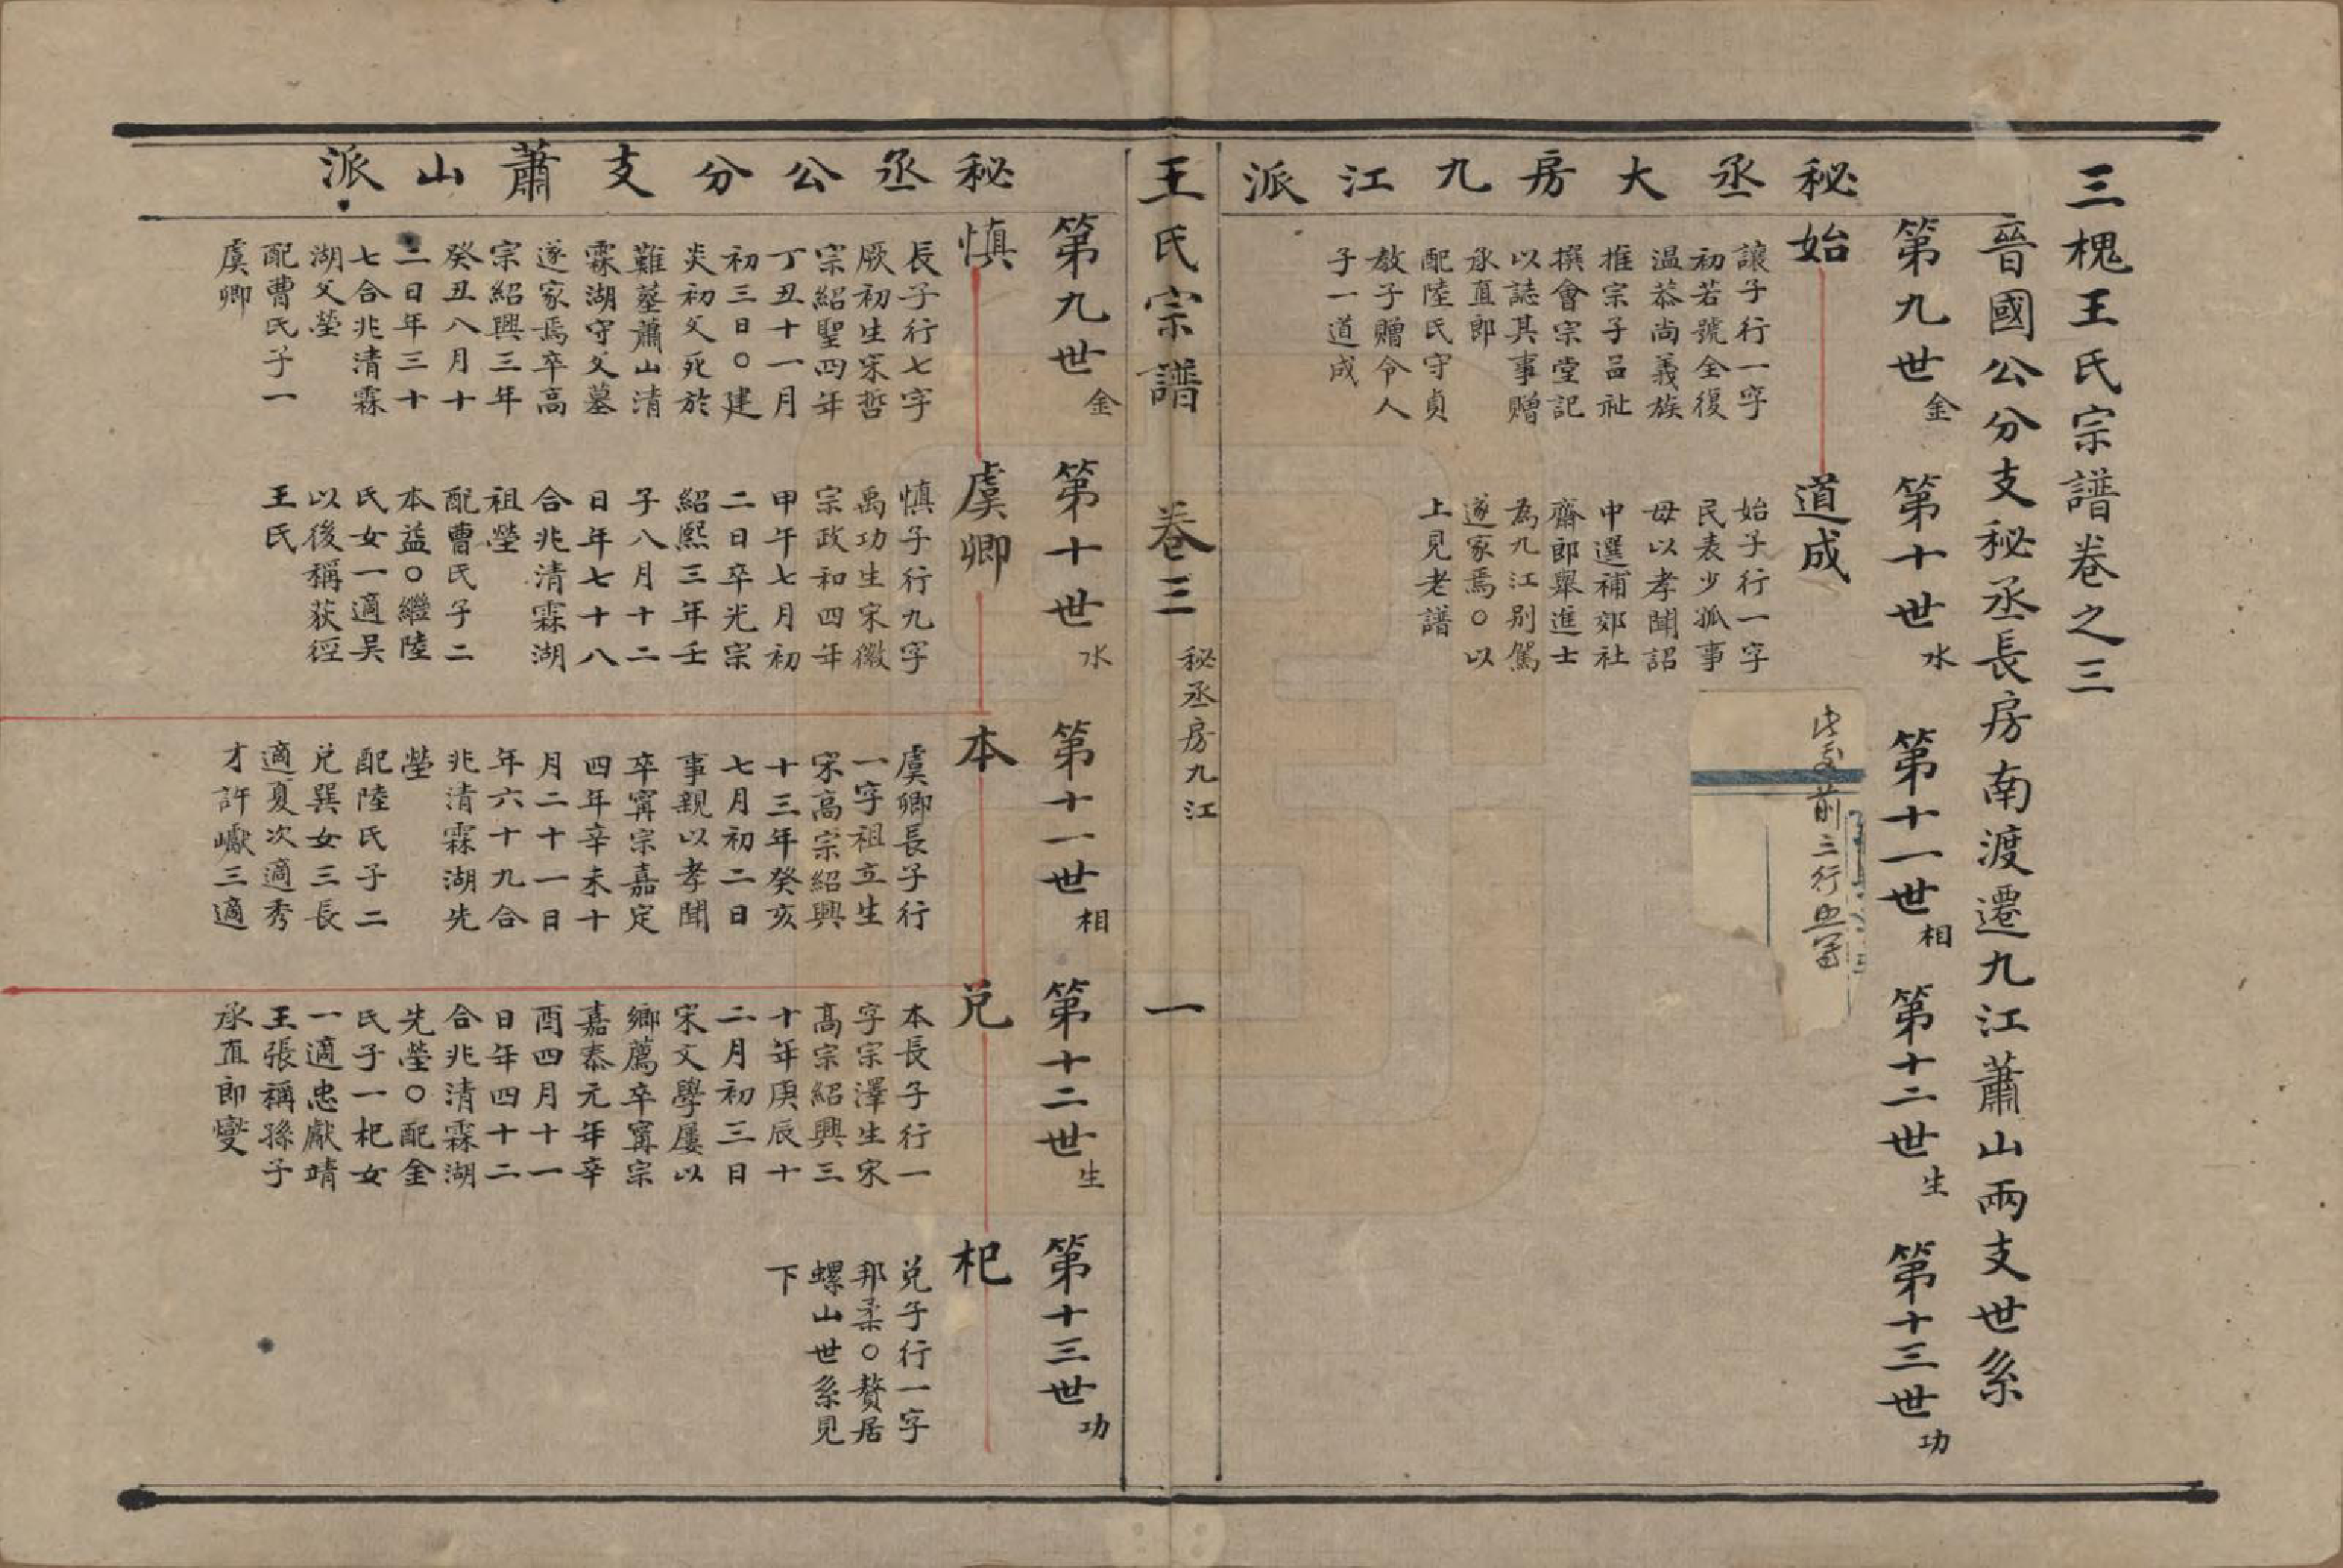 三槐王氏宗譜卷之三
晉國公分支秘丞長房南渡遷九江蕭山兩支世系
秘丞大房九江派
第九世金
第十世水
第十一世相
第十二世生
第十三世功
始
讓子行一字
初若號全復
温恭尚義族
推宗子吕祉
撰會宗堂記
以誌其事贈
承直郎
配陸氏守貞
教子贈令人
子一道成
道成
始子行一字
民表少孤事
母以孝聞詔
中選補郊社
齋郎舉進士
為九江别駕
遂家焉○以
上見老譜
此頁前三行照寫
王氏宗譜
卷三
秘丞房九江
一
秘丞公分支蕭山派
第九世金
第十世水
第十一世相
第十二世生
第十三世功
慎
長子行七字
厥初生宋哲
宗紹聖四年
丁丑十一月
初三日○建
炎初父死於
難墓蕭山清
霖湖守父墓
遂家焉卒高
宗紹興三年
癸丑八月十
二日年三十
七合兆清霖
湖父塋
配曹氏子一
虞卿
虞卿
慎子行九字
禹功生宋徽
宗政和四年
甲午七月初
二日卒光宗
紹熙三年壬
子八月十二
日年七十八
合兆清霖湖
祖塋
配曹氏子二
本益○繼陸
氏女一適吴
以後稱荻徑
王氏
本
虞卿長子行
一字祖立生
宋高宗紹興
十三年癸亥
七月初二日
事親以孝聞
卒寗宗嘉定
四年辛未十
月二十一日
年六十九合
兆清霖湖先
塋
配陸氏子二
兑巽女三長
適夏次適秀
才許巘三適
兑
本長子行一
字宗澤生宋
高宗紹興三
十年庚辰十
二月初三日
宋文學屢以
鄉薦卒寗宗
嘉泰元年辛
酉四月十一
日年四十二
合兆清霖湖
先塋○配金
氏子一杞女
一適忠獻靖
王張稱孫子
承直郎燮
杞
兑子行一字
邦柔○贅居
螺山世系見
下